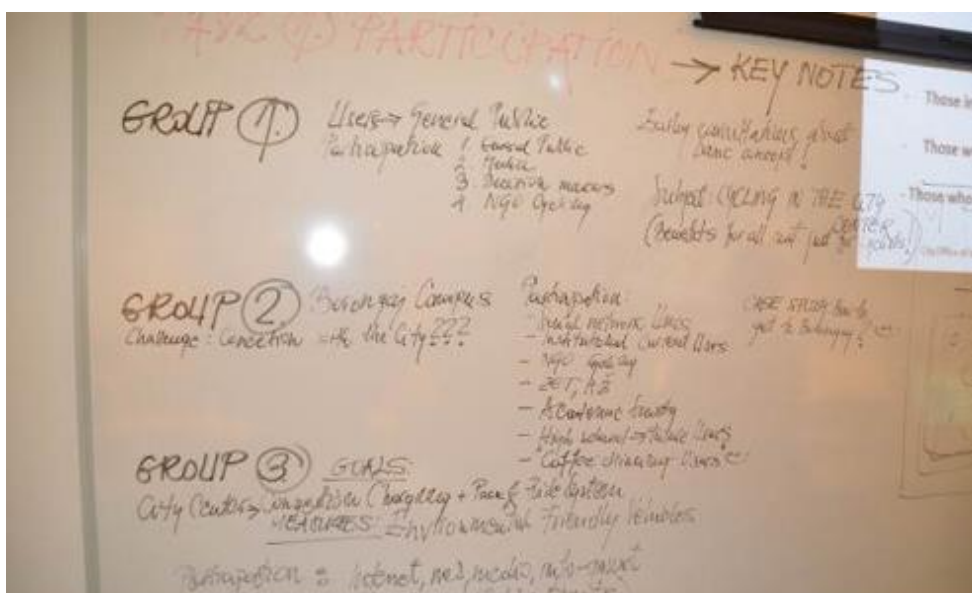 PARTICIPATION
→ KEY NOTES
GROUP 1.
Users → General Public
Participation 1. General Public
2. Media
3. Decision makers
4. NGO Cycling
Subject: CYCLING IN THE CITY CENTER
(Benefits for all not just
GROUP 2. Borongay Campus
Challenge: Conection with the City???
Participation:
- Social network Users
- Institutional Current Users
- NGO Cycling
- ZET, HŽ
- Academic
- High school → Future Users
- Coffee drinking Users
CASE STUDY how to
get to Borongay?
GROUP 3. GOALS:
City Center → Congestion Charging + Park & Ride System
MEASURES: Environmental Friendly Vehicles
Participation = Internet, media, info-
Those
Those w
Those who